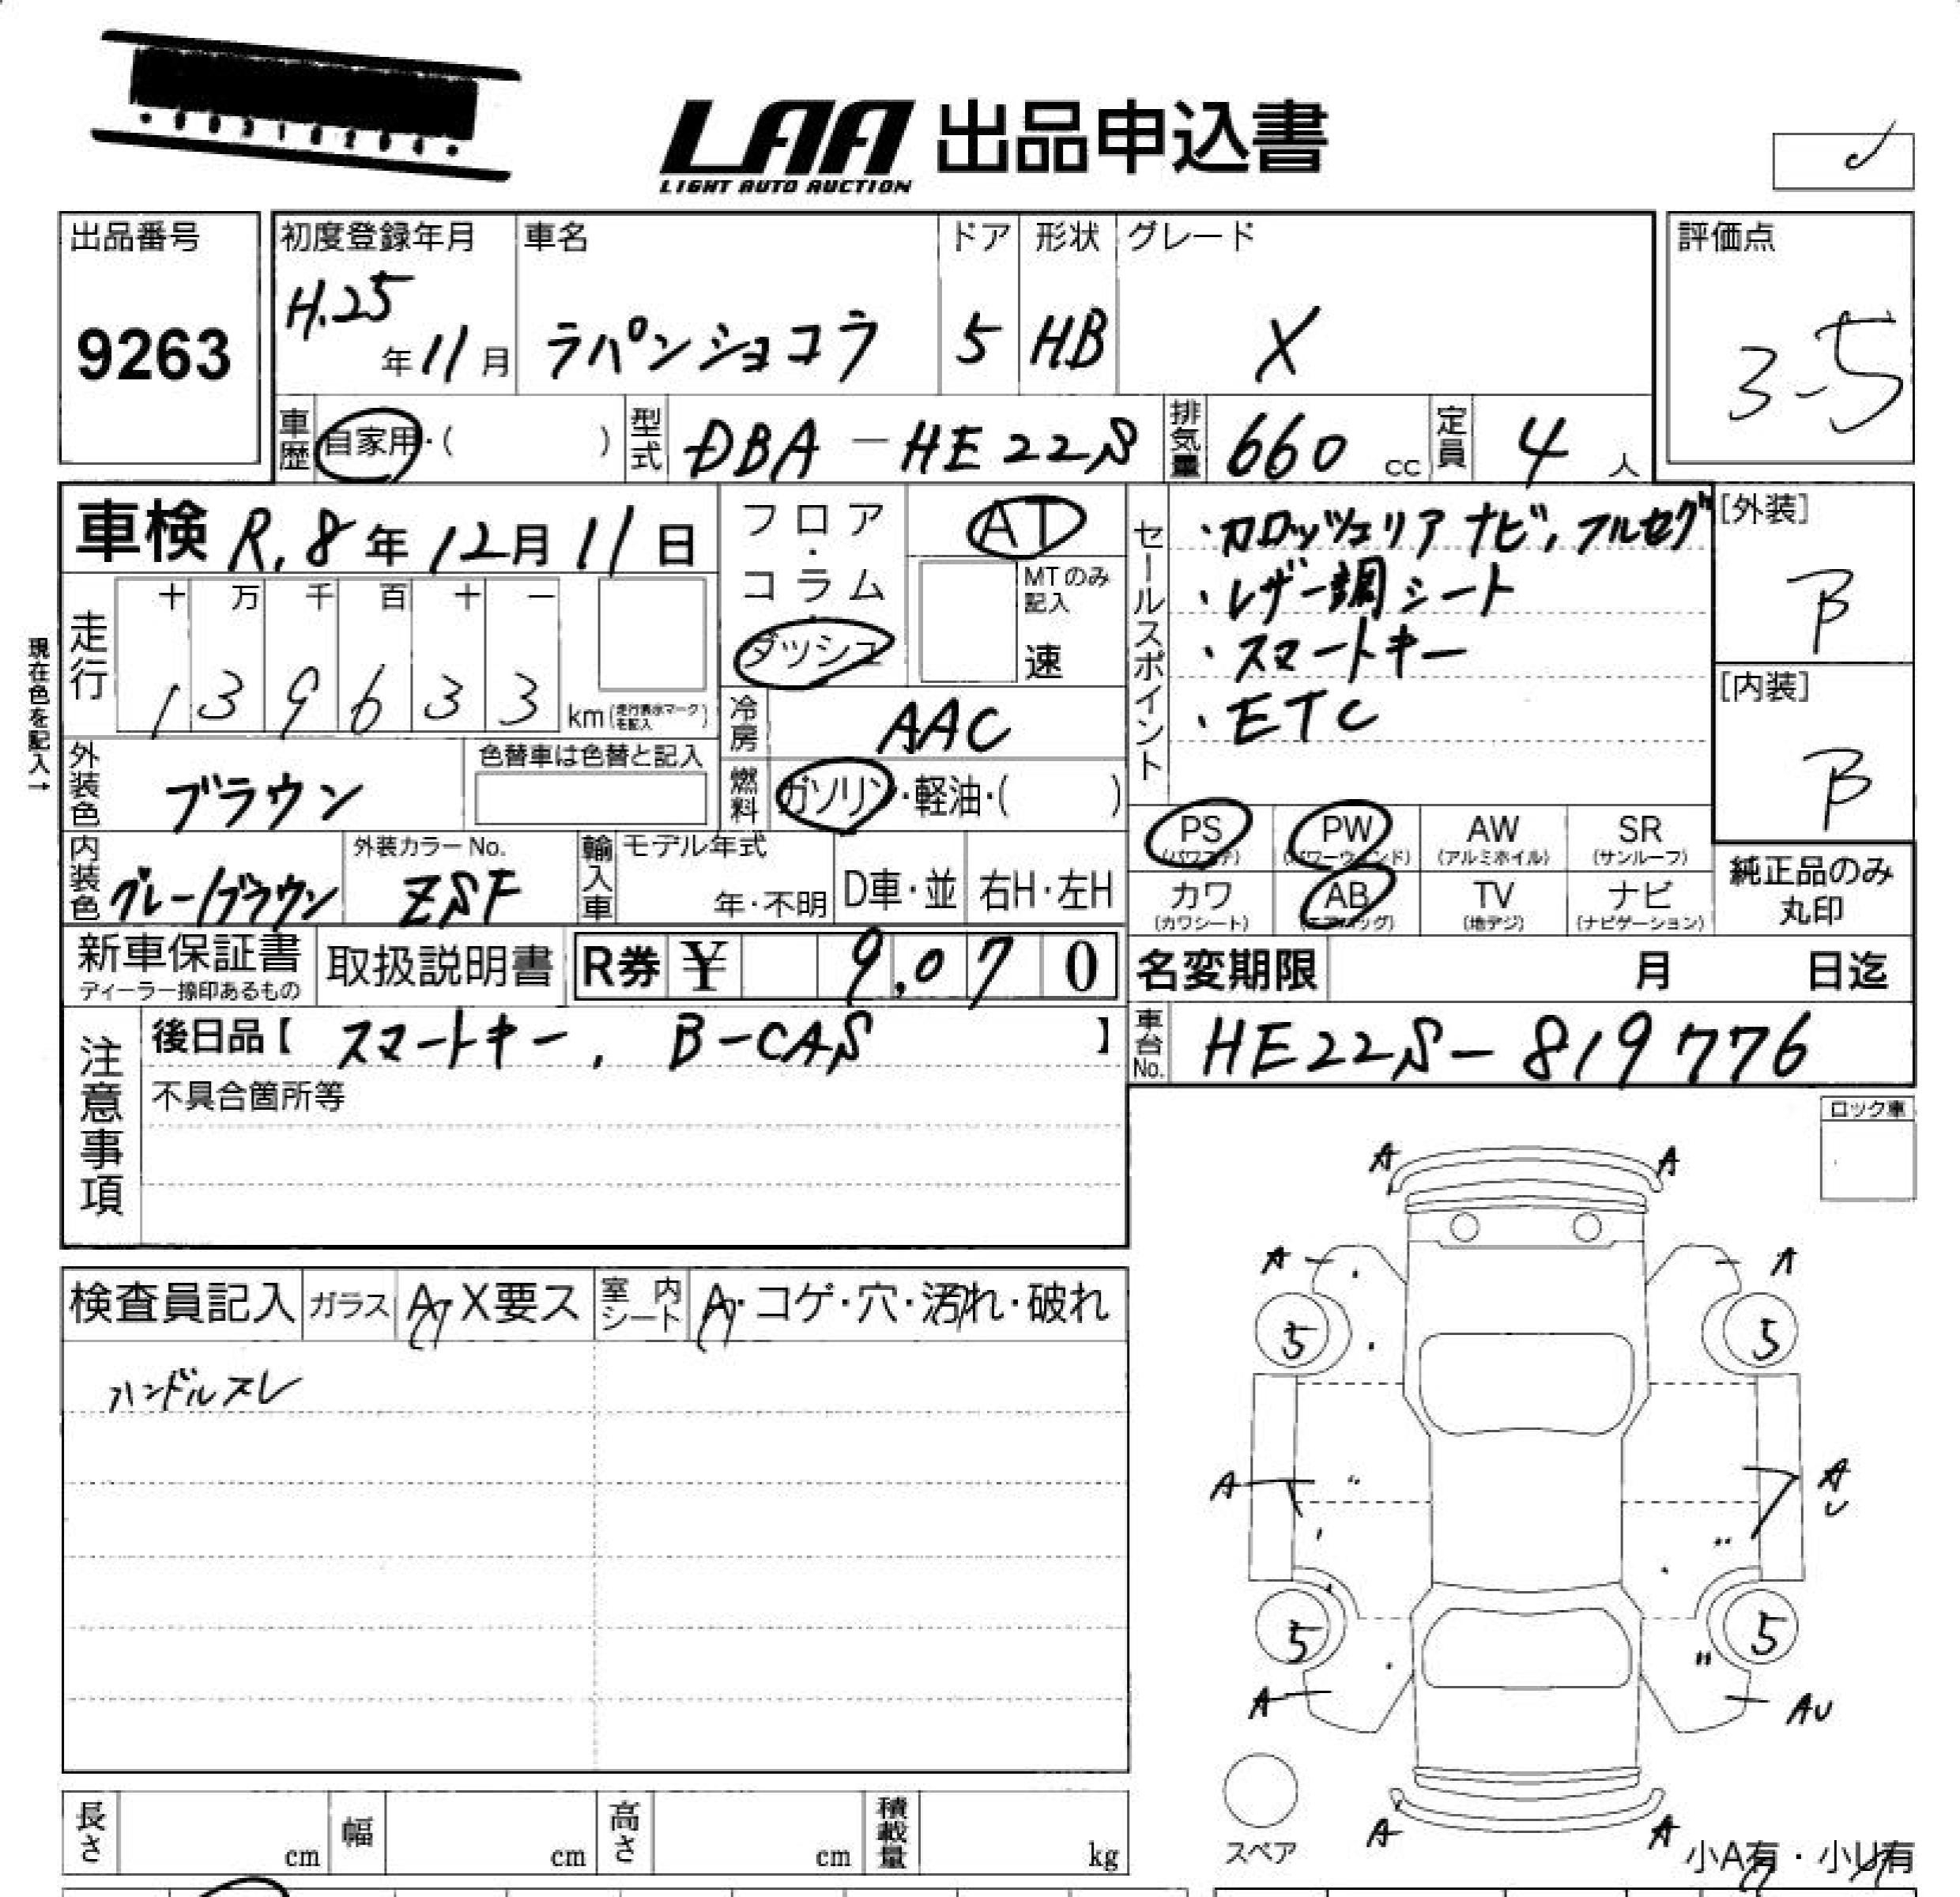 LAA 出品申込書
LIGHT AUTO AUCTION
出品番号
9263
初度登録年月
H.25年11月
車名
ラパンショコラ
ドア
5
形状
H.B
グレード
X
評価点
3-5
車歴
自家用・( )
型式
DBA-HE22S
排気量
660 cc
定員
4 人
車検 R.8年12月11日
フロア・コラム・ダッシュ
AT
MTのみ記入
速
セールスポイント
・カロッツェリア ナビ,フルセグ
・レザー調シート
・スマートキー
・ETC
[外装]
B
[内装]
B
現在色を記入→
走行
十 万 千 百 十 一
1 3 9 6 3 3 km(走行表示マークを記入)
冷房
AAC
外装色
ブラウン
色替車は色替と記入
燃料
ガソリン・軽油・( )
PS
(パワステ)
PW
(パワーウィンド)
AW
(アルミホイル)
SR
(サンルーフ)
内装色
グレー/ブラウン
外装カラーNo.
ZSF
輸入車
モデル年式
年・不明
D車・並
右H・左H
カワ
(カワシート)
AB
(エアバッグ)
TV
(地デジ)
ナビ
(ナビゲーション)
純正品のみ
丸印
新車保証書
ディーラー捺印あるもの
取扱説明書
R券 ¥ 9,070
名変期限 月 日迄
注意事項
後日品【 スマートキー, B-CAS 】
不具合箇所等
車台No.
HE22S-819776
ロック車
検査員記入
ガラス
A・X要ス
室内シート
A・コゲ・穴・汚れ・破れ
ハンドルスレ
A A
A A
5 5
A A
U
5 5
A AU
A A
スペア
小A有・小U有
長さ cm
幅 cm
高さ cm
積載量 kg